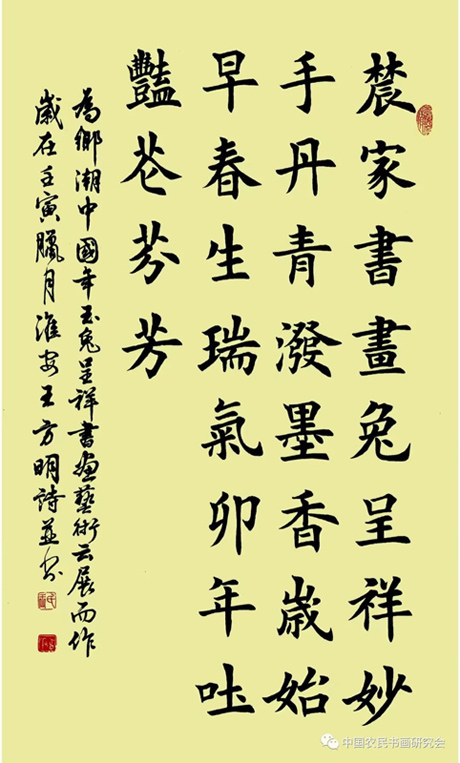 農家書畫兔呈祥妙
手丹青潑墨香歲始
早春生瑞氣卯年吐
豔花芬芳
為鄉潮中國年玉兔呈祥書畫藝術云展而作
歲在壬寅臘月淮安王方明詩並書
中国农民书画研究会